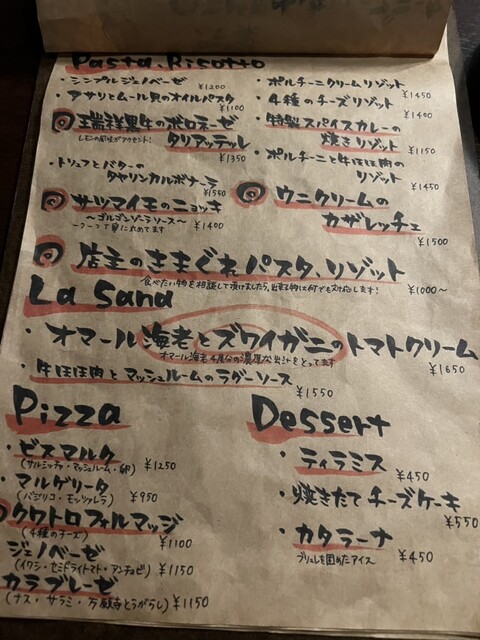 Pasta, Risotto
・シンプルジェノベーゼ ¥1200
・アサリとムール貝のオイルパスタ ¥1100
瑞祥黒牛のボロネーゼ
タリアッテレ
レモンの風味がアクセント! ¥1350
・トリュフとバターの
タヤリンカルボナーラ ¥1550
サツマイモのニョッキ
〜ゴルゴンゾーラソース〜 ¥1400
一つ一つ丁寧に丸めてます
・ポルチーニクリームリゾット ¥1450
・4種のチーズリゾット ¥1400
・特製スパイスカレーの
焼きリゾット ¥1150
・ポルチーニと牛ほほ肉の
リゾット ¥1450
ウニクリームの
カザレッチェ ¥1500
店主のきまぐれパスタ、リゾット
食べたい物を相談して頂けましたら、出来る物は何でも対応します! ¥1000〜
La Sana
・オマール海老とズワイガニのトマトクリーム
オマール海老4尾分の濃厚な出汁をとってます ¥1650
・牛ほほ肉とマッシュルームのラグーソース
¥1550
Pizza
・ビスマルク
(サルシッチャ・マッシュルーム・卵) ¥1250
・マルゲリータ
(バジリコ・モッツァレラ) ¥950
クワトロフォルマッジ
(4種のチーズ) ¥1100
ジェノベーゼ
(イワシ・セミドライトマト・アンチョビ) ¥1150
カラブレーゼ
(ナス・サラミ・万願寺とうがらし) ¥1150
Dessert
・ティラミス
¥450
・焼きたてチーズケーキ
¥550
・カタラーナ
ブリュレを固めたアイス ¥450